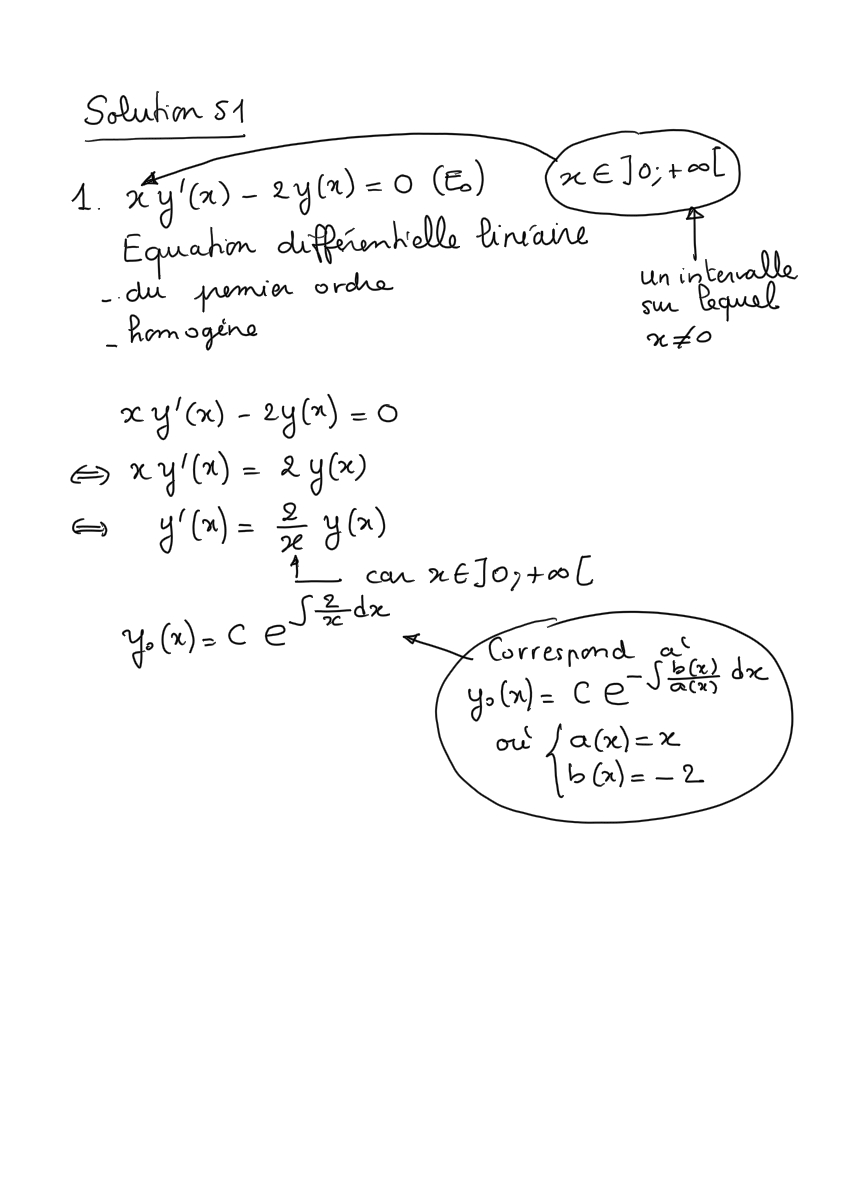 Solution S1
1. x y'(x) - 2y(x) = 0 (E₀)
x ∈ ]0; +∞[
Equation différentielle linéaire
- du premier ordre
- homogène
un intervalle
sur lequel
x ≠ 0
x y'(x) - 2y(x) = 0
⇔ x y'(x) = 2 y(x)
⇔ y'(x) = 2/x y(x)
car x ∈ ]0; +∞[
y₀(x) = C e^{∫ 2/x dx}
Correspond à
y₀(x) = C e^{-∫ b(x)/a(x) dx}
où { a(x) = x
b(x) = - 2